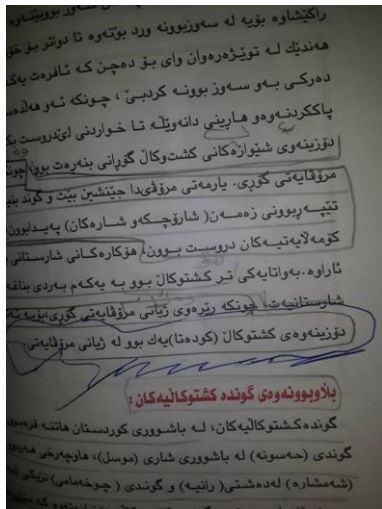 راکێشاوە بۆیە لە سەوزبوونە ورد بۆتەوە تا دواتر بۆ
هەندێك لـە توێـژەرەوان وای بـۆ دەچـن کـە ئافرەت
دەرکـی بـەو سـەوز بوونـە کردبـێ ، چـونکە ئـەو
پاککردنـەوەو هـاڕینی دانەوێڵـە تـا خـواردنی لێ
دۆزینەوەی شێوازەکانی کشتوکاڵ گۆڕانی بنەڕەت بوو
مرۆڤایەتی گۆڕی. یارمەتی مرۆڤیدا جێنشین بێت و گوند
تێپـەڕبوونی زەمـەن( شارۆچکـەو شـارەکان) پەیـدابوون.
کۆمەڵایەتیـەکان دروسـت بـوون، هۆکارەکـانی شارستانی
ئاراوە. بەواتایەکی تـر کـشتوکاڵ بـوو بـە یەکـەم بـەردی
شارستانیـەت. چـونکە رێرەوی ژیانی مرۆڤایەتی گۆڕی،
دۆزینەوەی کشتوکاڵ (کودەتا)یەك بوو لە ژیانی مرۆڤایەتی
بڵاوبوونەوەی گوندە کشتوکاڵیەکان:
گوندەکـشتوکاڵیەکان، لـە باشـووری کوردسـتان هاتنـە
گوندی (حەسونە) لە باشووری شاری (موسل)، هاوچەرخی
(شمشارە) لەدەشتـی( رانیـە) و گونـدی ( چوخەمامی) نزیکی